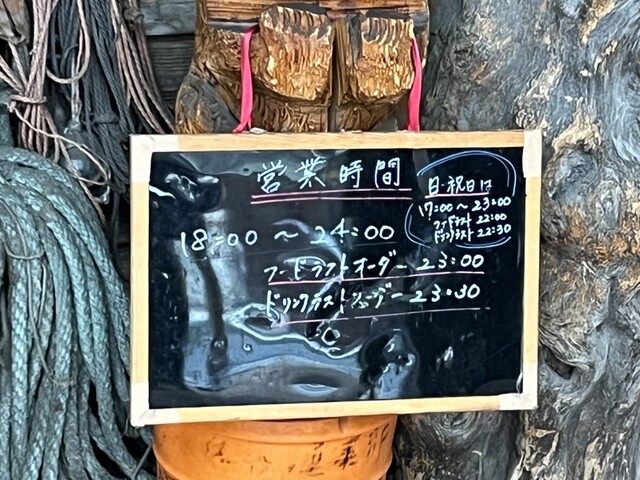 営業時間
18:00 ～ 24:00
フードラストオーダー 23:00
ドリンクラストオーダー 23:30
日・祝日は
17:00 ～ 23:00
フードラスト 22:00
ドリンクラスト 22:30